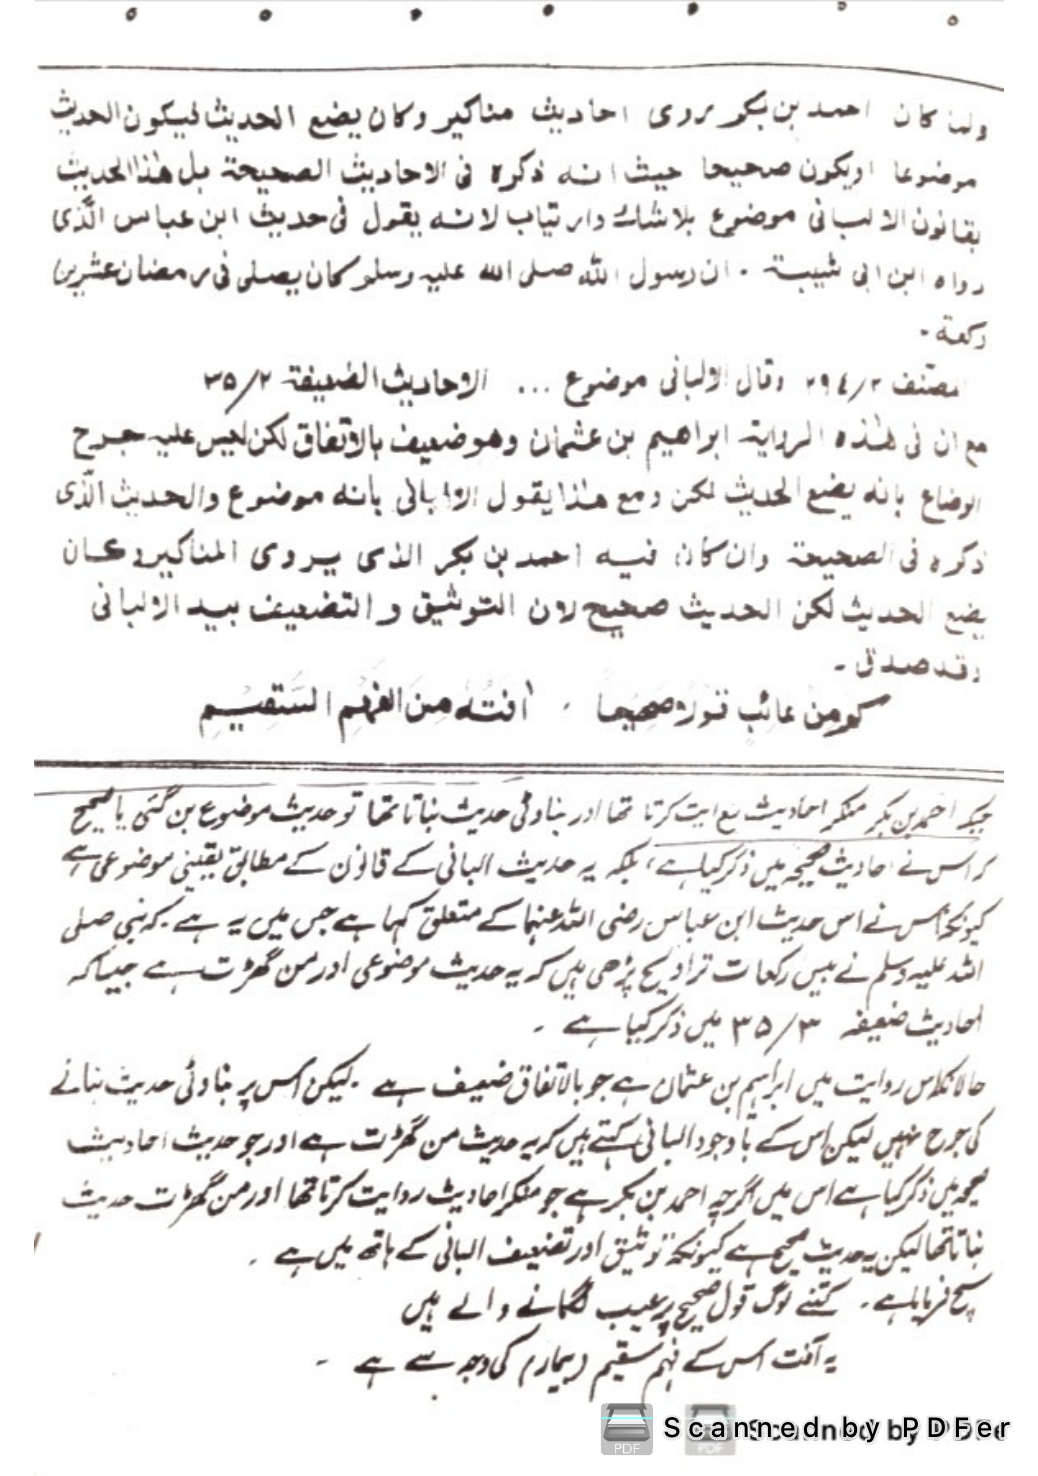 ولما كان احمد بن بكر يروى احاديث مناكير وكان يضع الحديث فيكون الحديث
موضوعا او يكون صحيحا حيث انه ذكره فى الاحاديث الصحيحة بل هذا الحديث
بقانون الالبانى موضوع بلا شك وارتياب لانه يقول فى حديث ابن عباس الّذى
رواه ابن ابى شيبة ۔ ان رسول الله صلى الله عليه وسلم كان يصلى فى رمضان عشرين
ركعة ۔
المصنف ۲/۳۹٤ وقال الالبانى موضوع ... الاحاديث الضعيفة ۲/۳۵
مع ان فى هٰذه الرواية ابراهيم بن عثمان وهو ضعيف بالاتفاق لكن ليس عليه جرح
الوضاع بانه يضع الحديث لكن ومع هٰذا يقول الالبانى بانه موضوع والحديث الّذى
ذكره فى الصحيحة وان كان فيه احمد بن بكر الذى يروى المناكير وكان
يضع الحديث لكن الحديث صحيح لان التوثيق و التضعيف بيد الالبانى
وقد صدق ۔
كم من عائب قولا صحيحا ، آفته من الفهم السقيم
جبکہ احمد بن بکر منکر احادیث روایت کرتا تھا اور بناوٹی حدیث بناتا تھا تو حدیث موضوع بن گئی یا صحیح
کہ اس نے احادیث صحیحہ میں ذکر کیا ہے، بلکہ یہ حدیث البانی کے قانون کے مطابق یقینی موضوعی ہے
کیونکہ اس نے اس حدیث ابن عباس رضی اللہ عنہما کے متعلق کہا ہے جس میں یہ ہے کہ نبی صلی
اللہ علیہ وسلم نے بیس رکعات تراویح پڑھی ہیں کہ یہ حدیث موضوعی اور من گھڑت ہے جیسا کہ
احادیث ضعیفہ ۳/۳۵ میں ذکر کیا ہے ۔
حالانکہ اس روایت میں ابراہیم بن عثمان ہے جو بالاتفاق ضعیف ہے ۔ لیکن اس پر بناوٹی حدیث بنانے
کی جرح نہیں لیکن اس کے باوجود البانی کہتے ہیں کہ یہ حدیث من گھڑت ہے اور جو حدیث احادیث
صحیحہ میں ذکر کیا ہے اس میں اگرچہ احمد بن بکر ہے جو منکر احادیث روایت کرتا تھا اور من گھڑت حدیث
بناتا تھا لیکن یہ حدیث صحیح ہے کیونکہ توثیق اور تضعیف البانی کے ہاتھ میں ہے ۔
سچ فرمایا ہے ۔ کتنے لوگ قول صحیح پر عیب لگانے والے ہیں
یہ آفت اس کے فہم سقیم (بیمار) کی وجہ سے ہے ۔
Scanned by PDFer